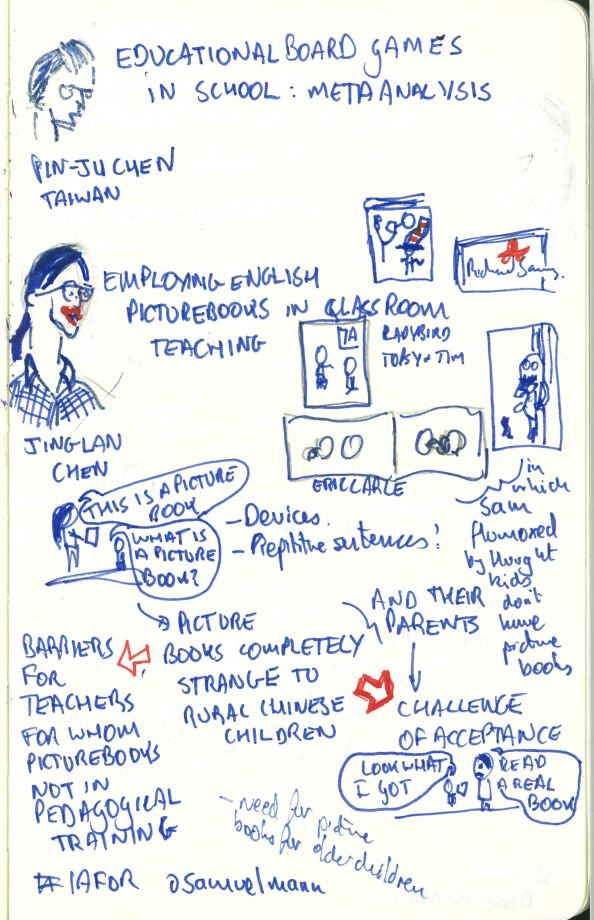 EDUCATIONAL BOARD GAMES
IN SCHOOL: METAANALYSIS
PIN-JU CHEN
TAIWAN
EMPLOYING ENGLISH
PICTUREBOOKS IN CLASSROOM
TEACHING
JING-LAN
CHEN
LADYBIRD
TOPSY + TIM
ERIC CARLE
THIS IS A PICTURE
BOOK
WHAT IS
A PICTURE
BOOK?
- Devices.
- Repititive sentences!
in
which
Sam
flumoxed
by thought
kids
don't
have
picture
books
→ PICTURE
BOOKS COMPLETELY
STRANGE TO
RURAL CHINESE
CHILDREN
AND THEIR
PARENTS
BARRIERS
FOR
TEACHERS
FOR WHOM
PICTUREBOOKS
NOT IN
PEDAGOGICAL
TRAINING
CHALLENGE
OF ACCEPTANCE
LOOK WHAT
I GOT
READ
A REAL
BOOK
- need for picture
books for older children
#IAFOR @samuelmann